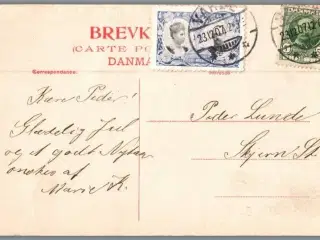 BREVK
(CARTE PO
DANMA
Correspondance.
Kære Peder!
Glædelig Jul
og et godt Nytaar
ønskes af
Marie K.
Peder Lunde
Skjern St.